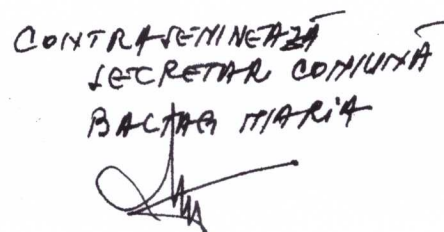 CONTRASEMNEAZĂ
SECRETAR COMUNĂ
MARIA